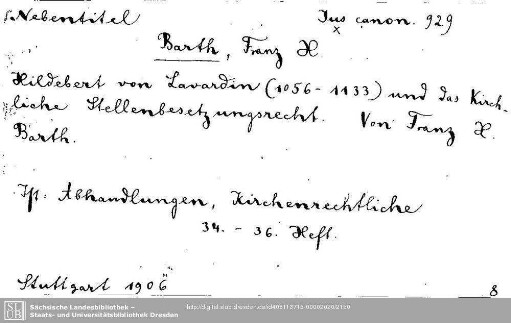 s. Nebentitel
Jus canon. 929
x
Barth, Franz X.
Hildebert von Lavardin (1056-1133) und das Kirch-
liche Stellenbesetzungsrecht. Von Franz X.
Barth.
Abhandlungen, Kirchenrechtliche
34. - 36. Heft.
Stuttgart 1906
8
SLUB
Sächsische Landesbibliothek –
Staats- und Universitätsbibliothek Dresden